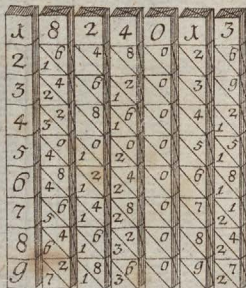 1 8 2 4 0 1 3
2 1 6 4 8 0 2 6
3 2 4 6 1 2 0 3 9
4 3 2 8 1 6 0 4 1 2
5 4 0 1 0 2 0 0 5 1 5
6 4 8 1 2 2 4 0 6 1 8
7 5 6 1 4 2 8 0 7 2 1
8 6 4 1 6 3 2 0 8 2 4
9 7 2 1 8 3 6 0 9 2 7